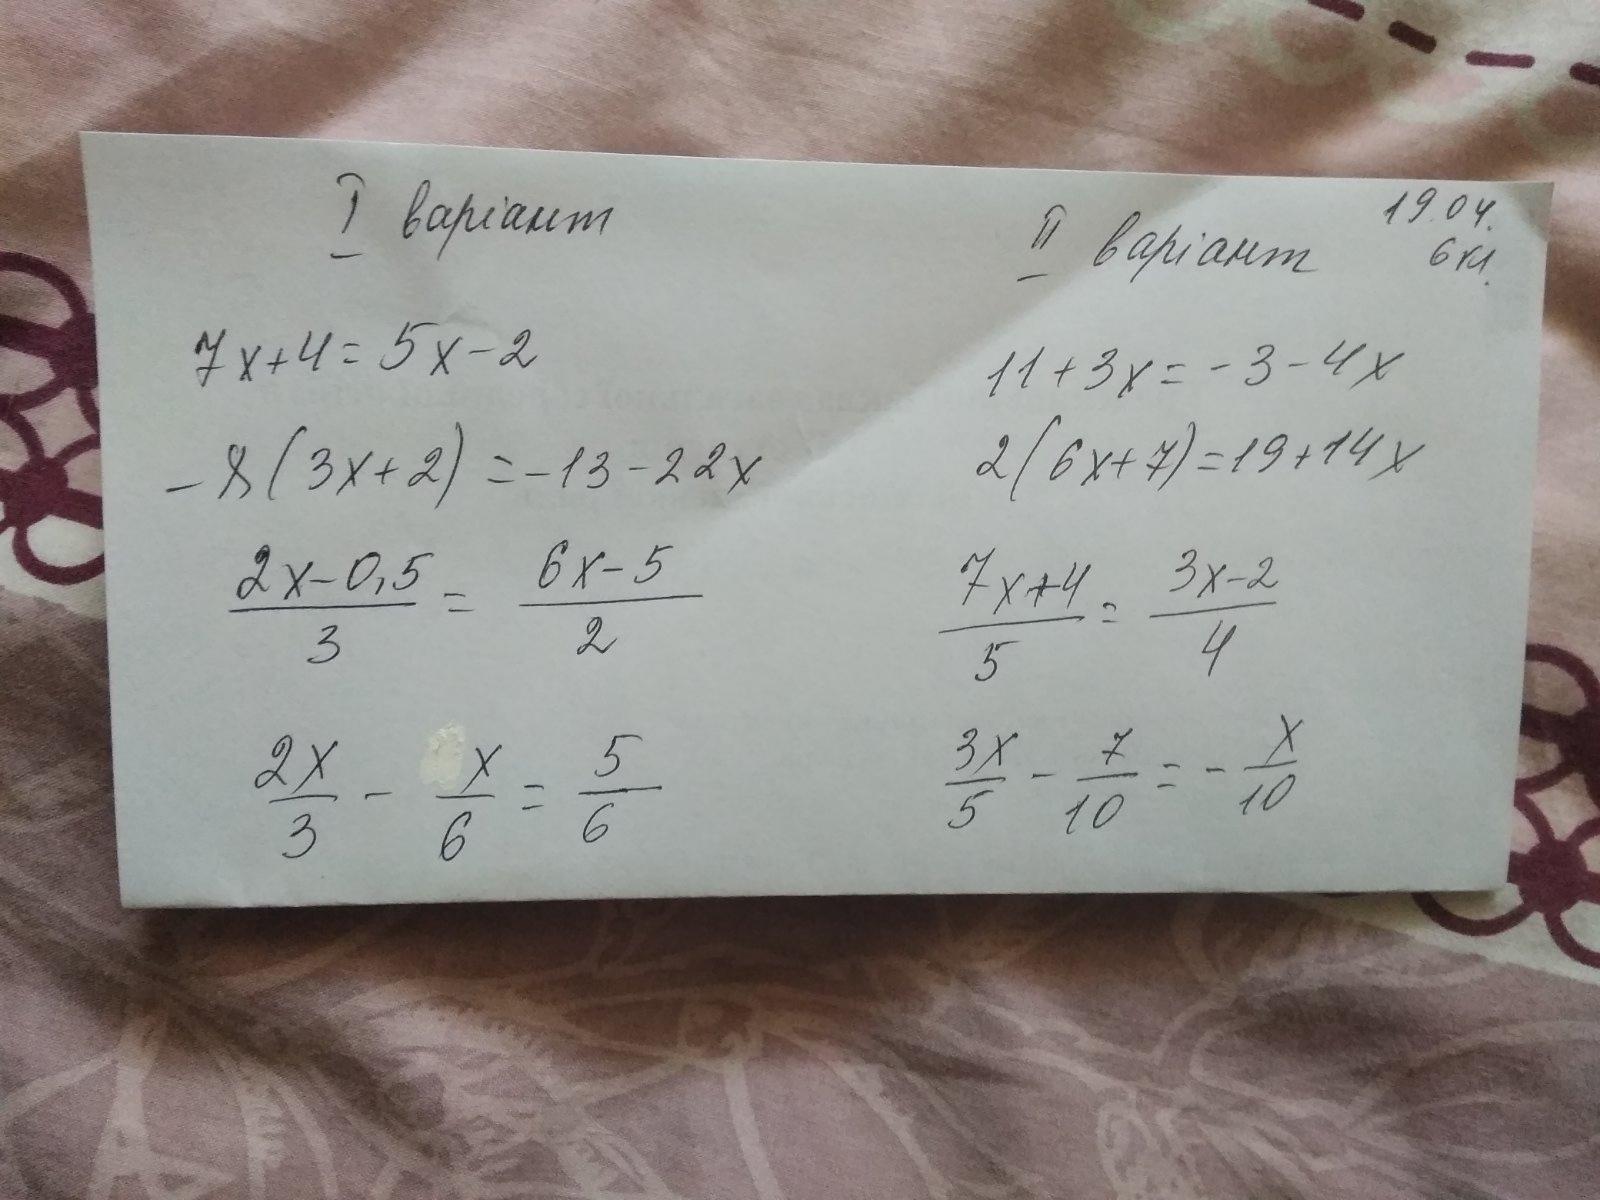 I варіант
7x+4=5x-2
-8(3x+2)=-13-22x
2x-0,5/3 = 6x-5/2
2x/3 - x/6 = 5/6
19.04.
6 кл.
II варіант
11+3x=-3-4x
2(6x+7)=19+14x
7x+4/5 = 3x-2/4
3x/5 - 7/10 = - x/10